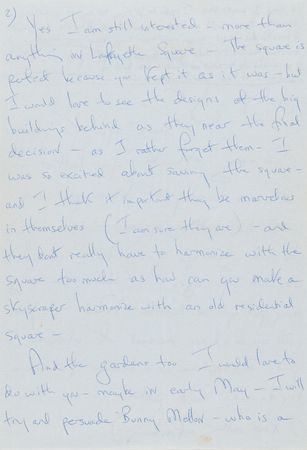 2)
Yes I am still interested - more than
anything in Lafayette Square - The square is
perfect because you kept it as it was - but
I would love to see the designs of the big
buildings behind as they near the final
decision - as I rather forget them - I
was so excited about saving the square -
and I think it important they be marvelous
in themselves (I am sure they are) - and
they dont really have to harmonize with the
square too much - as how can you make a
skyscraper harmonize with an old residential
square -
And the gardens too I would love to
do with you - maybe in early May - I will
try and persuade Bunny Mellon - who is a